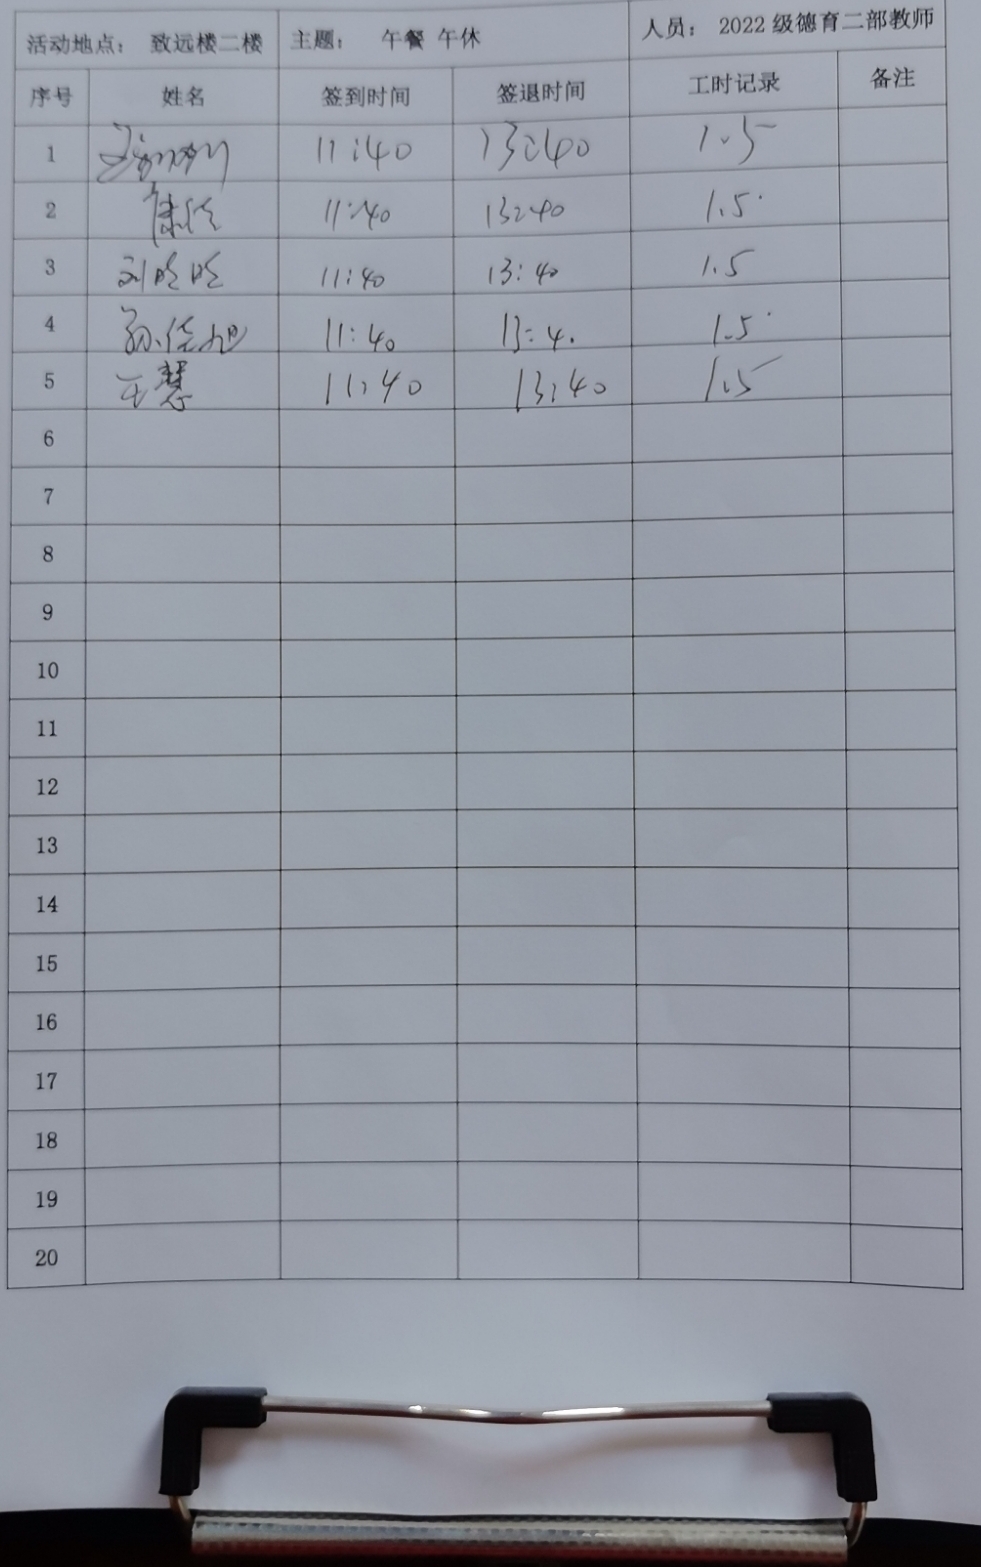 活动地点： 致远楼二楼 主题： 午餐 午休 人员： 2022 级德育二部教师
序号 姓名 签到时间 签退时间 工时记录 备注
1 11:40 13:40 1.5
2 康佳 11:40 13:40 1.5
3 刘晗晗 11:40 13:40 1.5
4 孙佳旭 11:40 13:4. 1.5
5 王慧 11:40 13:40 1.5
6
7
8
9
10
11
12
13
14
15
16
17
18
19
20